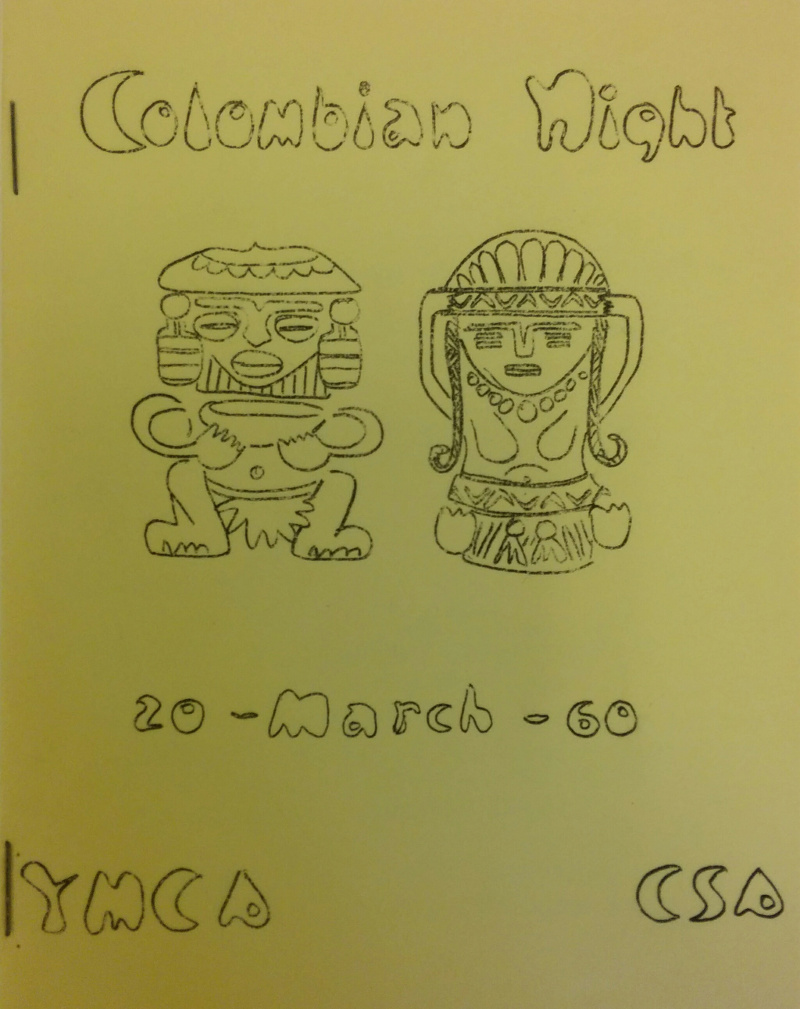 Colombian Night
20 - March - 60
YMCA CSA